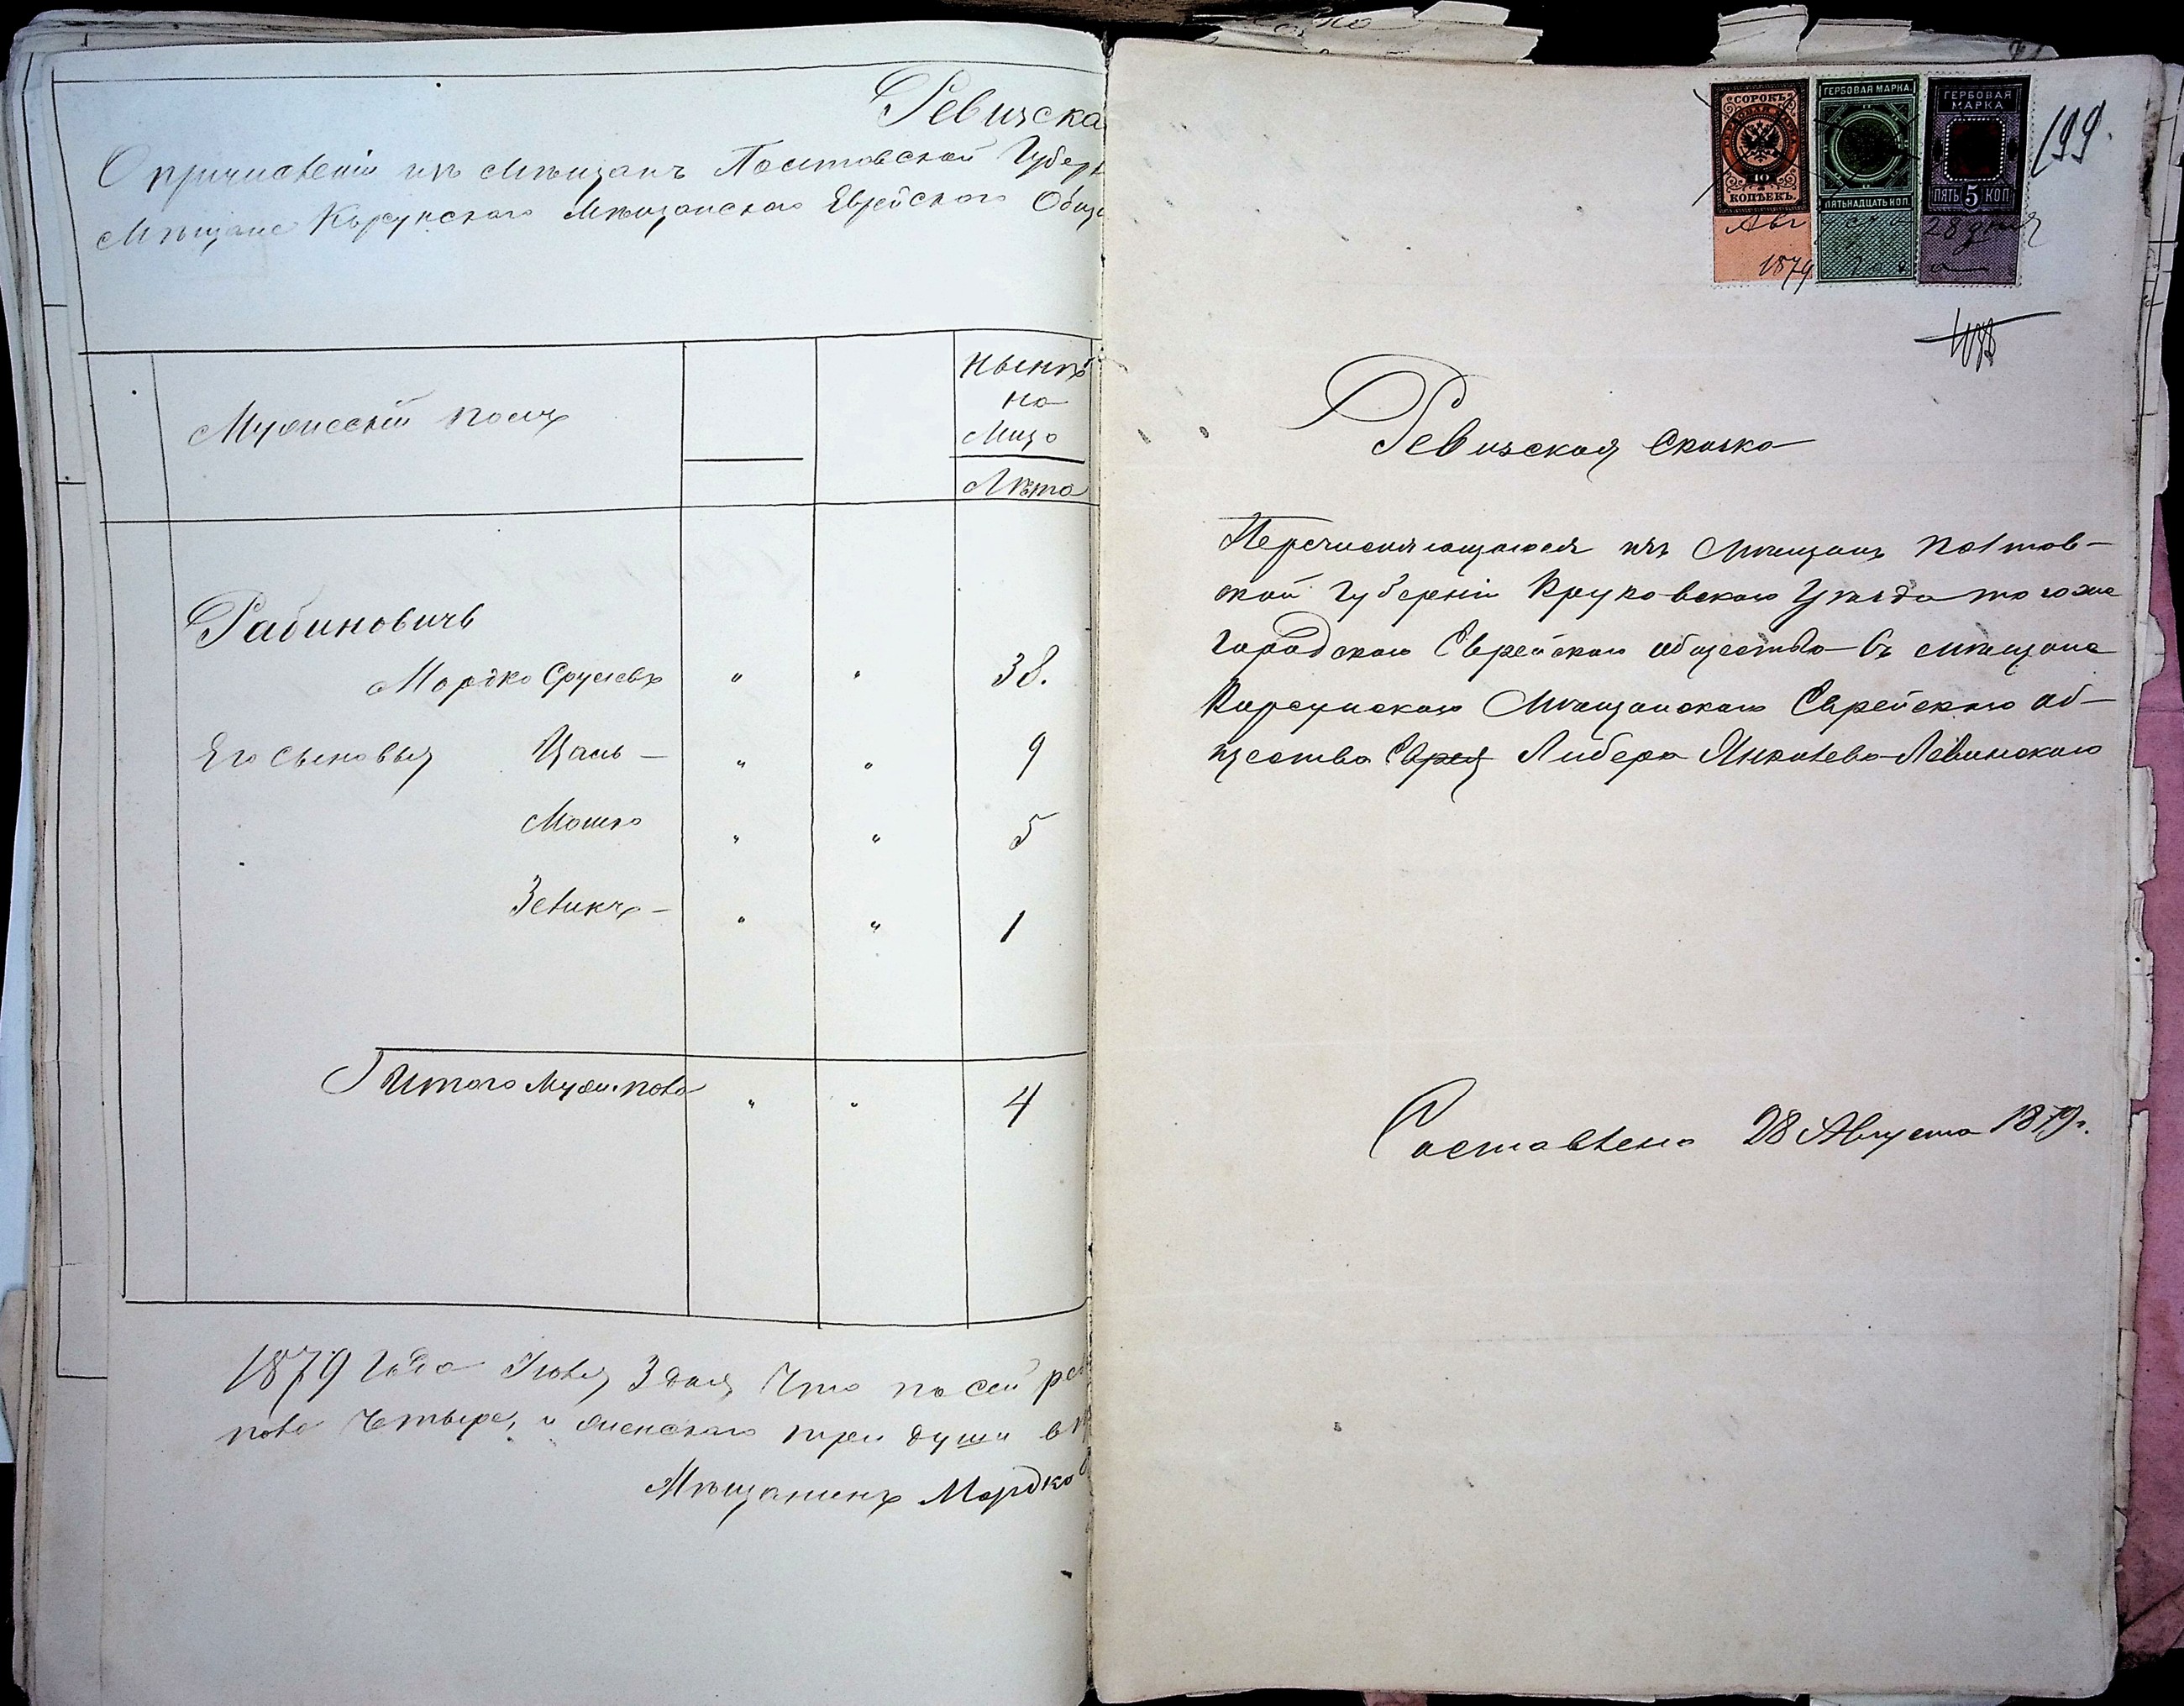 Ревизска
О причислении изъ Мѣщанъ Полтавской Губер
Мѣщане Корсунскаго Мѣщанскаго Еврейскаго Обще
Мужескій полъ
Нынѣ
на
Лицо
Лѣта
Рабиновичъ
Мордко Сруслевъ " " 38.
Его сыновья Цаль — " " 9
Мошко " " 5
Зеликъ — " " 1
Итого Муж. пола " " 4
1879 Года Іюля 3 дня Что по сей ре
пола Четыре, и женскаго три души в
Мѣщанинъ Мордко
СОРОКЪ
40
КОПѢЕКЪ.
ГЕРБОВАЯ МАРКА.
ПЯТНАДЦАТЬ КОП.
ГЕРБОВАЯ
МАРКА
ПЯТЬ 5 КОП
199.
Авгу 28 дня
1879 года
Ревизская Сказка
Перечисляющагося изъ Мѣщанъ Полтав-
ской Губерніи Уѣзда того же
Городского Еврейскаго общества въ мѣщане
Корсунскаго Мѣщанскаго Еврейскаго об-
щества Еврея Либера Янкелева Левинскаго
Составлена 28 Августа 1879 г.